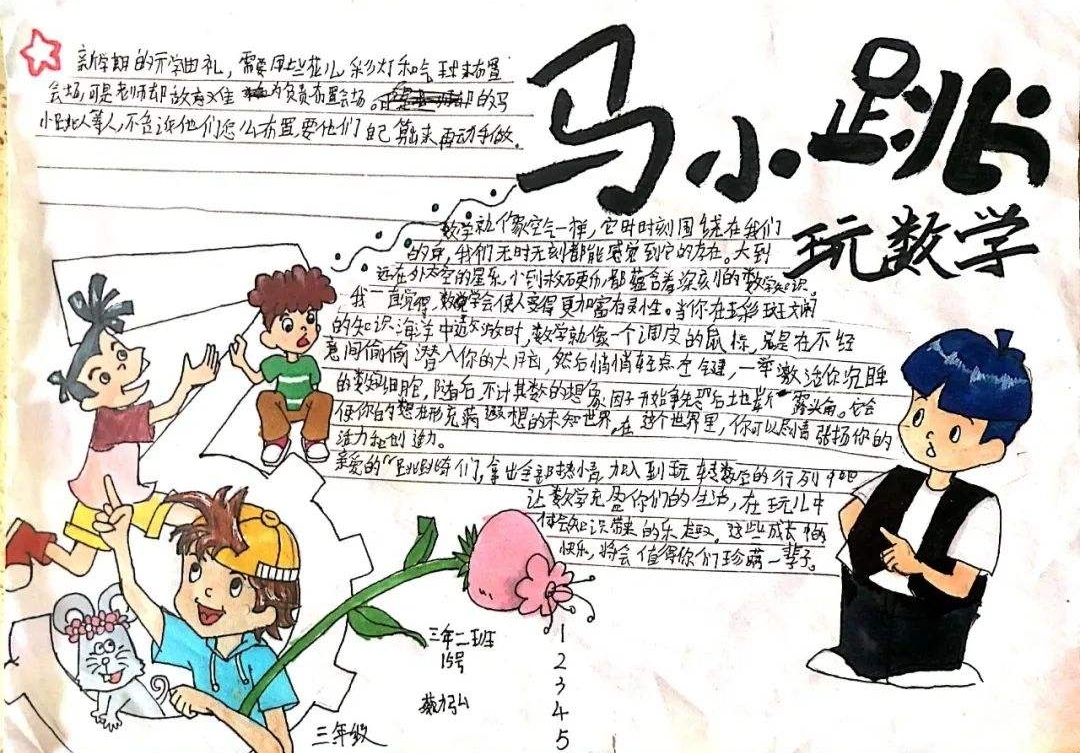 马小跳
玩数学
新学期的开学典礼，需要用些花儿彩灯和气球来布置
会场，可是老师却故意难为负责布置会场。的马
小跳等人，不告诉他们怎么布置要他们自己算出来再动手做。
数学就像空气一样，它时时刻刻围绕在我们
的身，我们无时无刻都能感觉到它的存在。大到
远在外太空的星系，小到一枚硬币，都蕴含着深刻的数学知识。
我一直觉得，数学会使人变得更加富有灵性。当你在五彩斑斓
的知识海洋中遨游时，数学就像一个调皮的鼠标，总是在不经
意间偷偷潜入你的大脑，然后悄悄轻点左键，一举激活你沉睡
的数学细胞，随后，不计其数的想象因子开始争先恐后地崭露头角。它会
使你的思维形充满遐想的未知世界，在这个世界里，你可以尽情张扬你的
活力和创造力。
亲爱的“跳跳”们，拿出全部热情，加入到玩转数学的行列中吧
让数学充盈你们的生活，在玩儿中
体会知识带来的乐趣。这些成长的
快乐，将会值得你们珍藏一辈子。
三年二班
15号
三年级
1
2
3
4
5